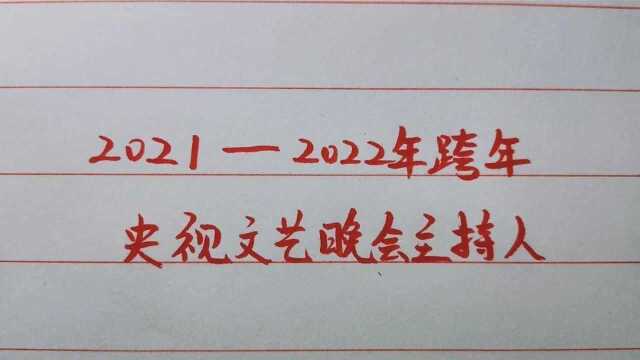 2021一2022年跨年
央视文艺晚会主持人